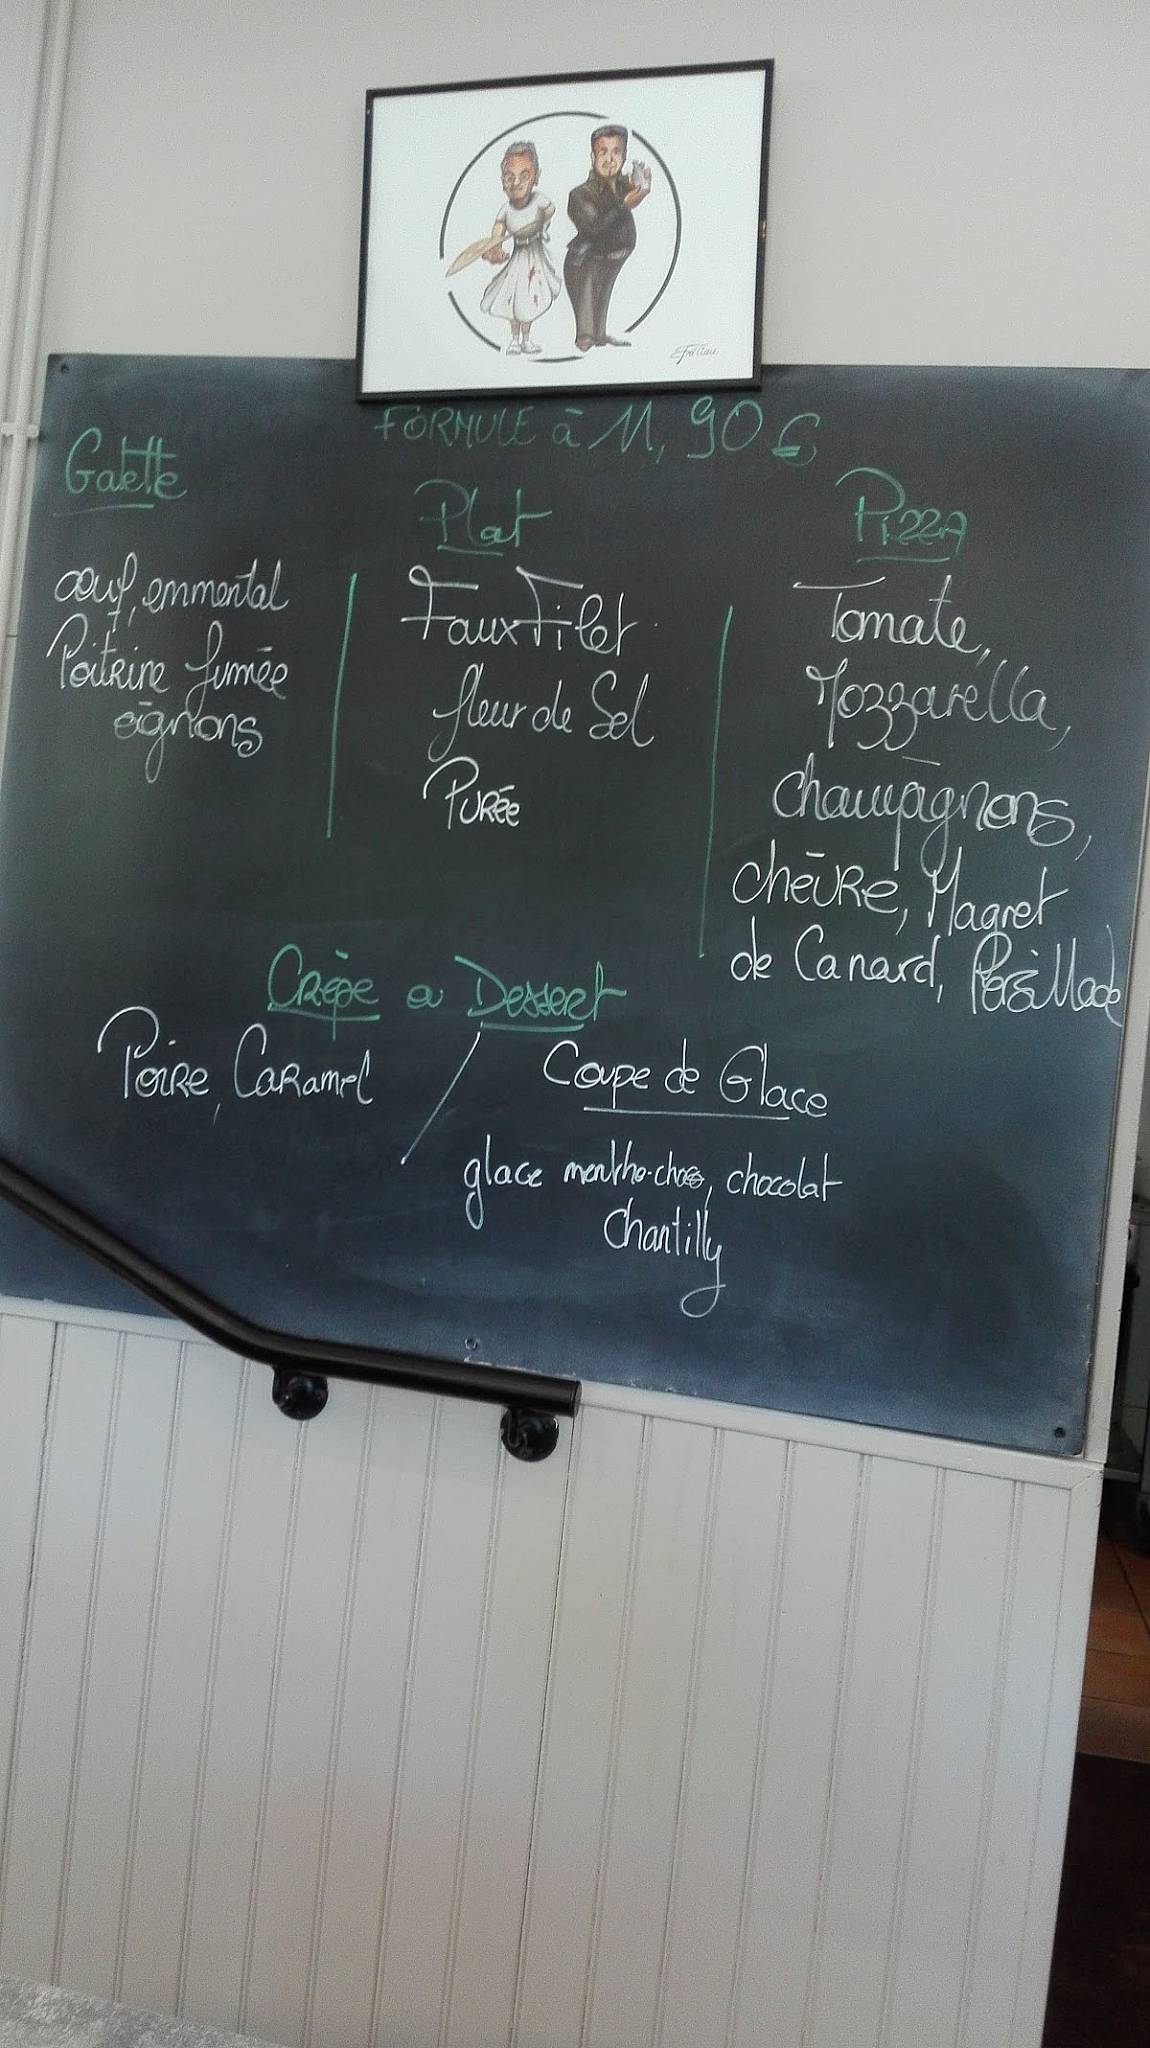 FORMULE à 11,90€
Galette
œuf, emmental
Poitrine fumée
oignons
Plat
Faux Filet
fleur de Sel
Purée
Pizza
Tomate,
Mozzarella,
champignons,
chèvre, Magret
de Canard, Persillade
Crêpe ou Dessert
Poire, Caramel
Coupe de Glace
glace menthe-choc, chocolat
Chantilly